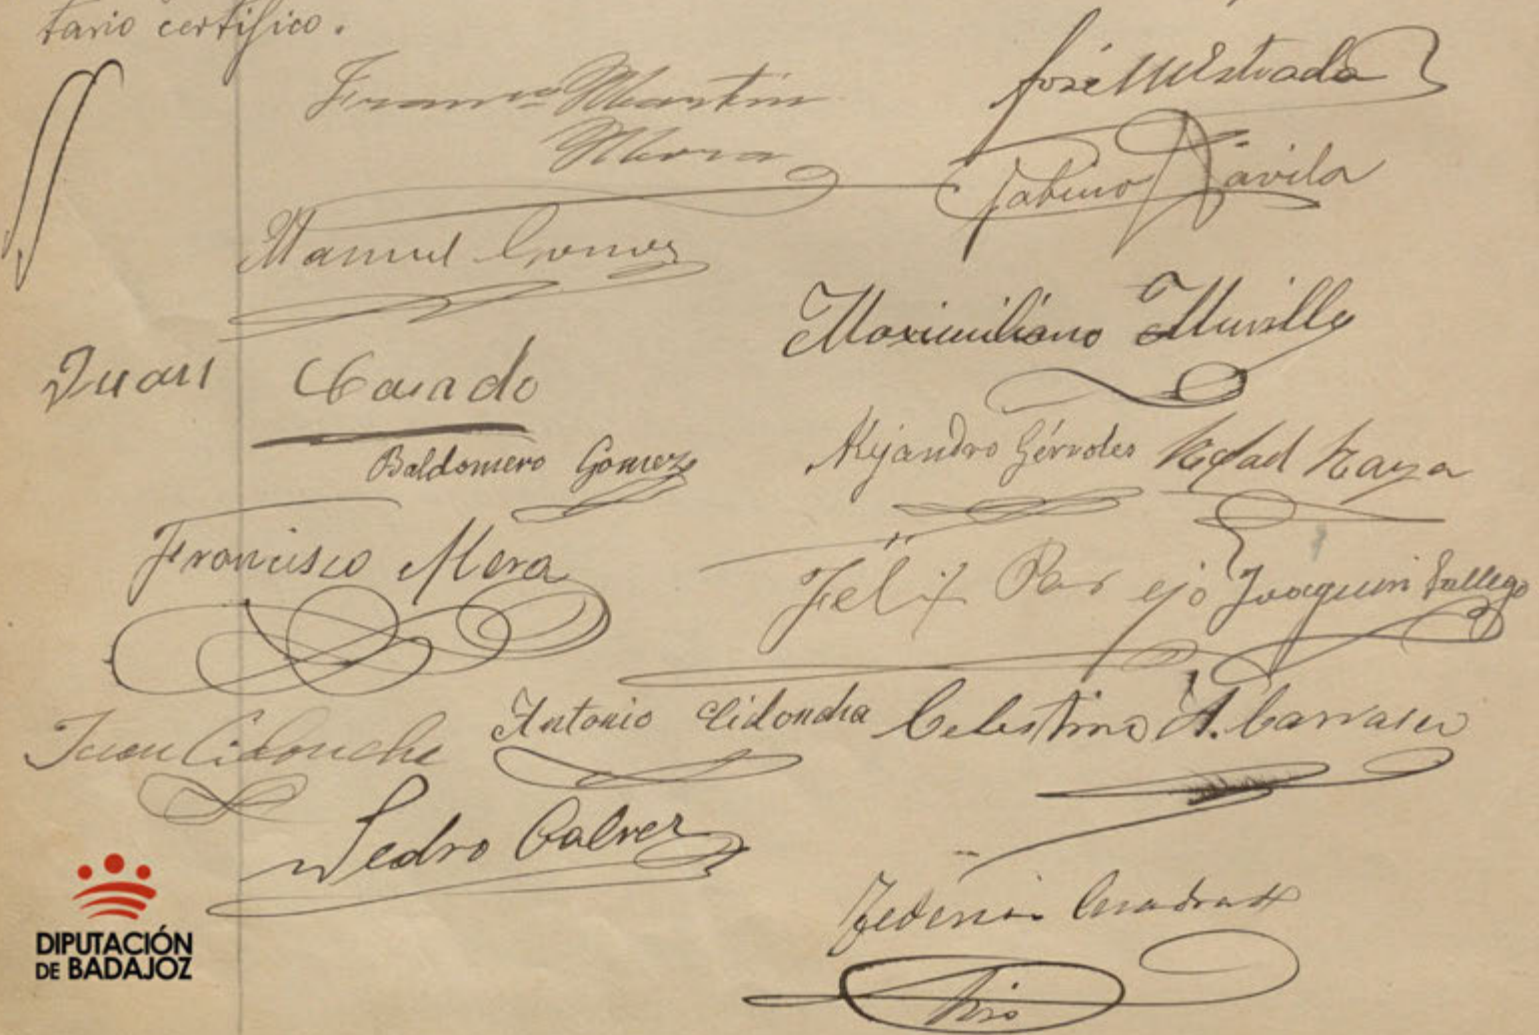 tario certifico.
Franco Martin
Mora
José M Estrada
Sabino Dávila
Manuel Gomez
Maximiliano Murillo
Juan Casado
Baldomero Gomez
Alejandro Gérvoles
Raya
Francisco Mera
Felix Parejo
Joaquin Gallego
Juan Cidoncha
Antonio Cidoncha
Celestino A. Carrasco
Pedro Galvez
Federico Cuadrado
DIPUTACIÓN
DE BADAJOZ